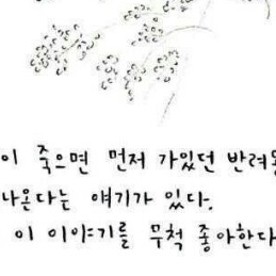 이 죽으면 먼저 가있던 반려
나온다는 얘기가 있다.
이 이야기를 무척 좋아한다